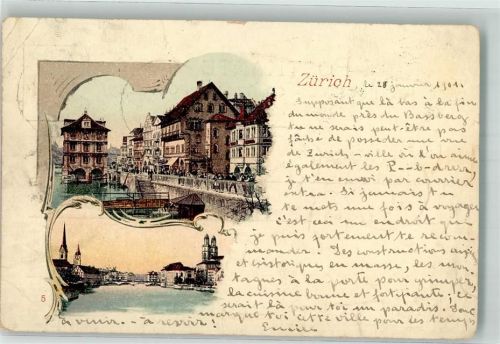 Zürich
le 28 janvier 1901.
Supposant que là bas à la fin
du monde près du Bassberg
tu ne serais peut-être pas
fâché de posséder une vue
de Zurich - ville où l'on aime
également les P--b-dres,
je t'en envoi par courrier
extra. Si jamais tu
te mets une fois à voyager
c'est ici un endroit que
je puis fortement te recom-
mander! Des constructions
et historiques en masse, les mon-
tagnes à la porte pour grimper,
la cuisine bonne et fortifiante; ce
serait là pour toi un paradis. Donc
marque toi cette ville pour les temps
à venir. - à revoir!
5